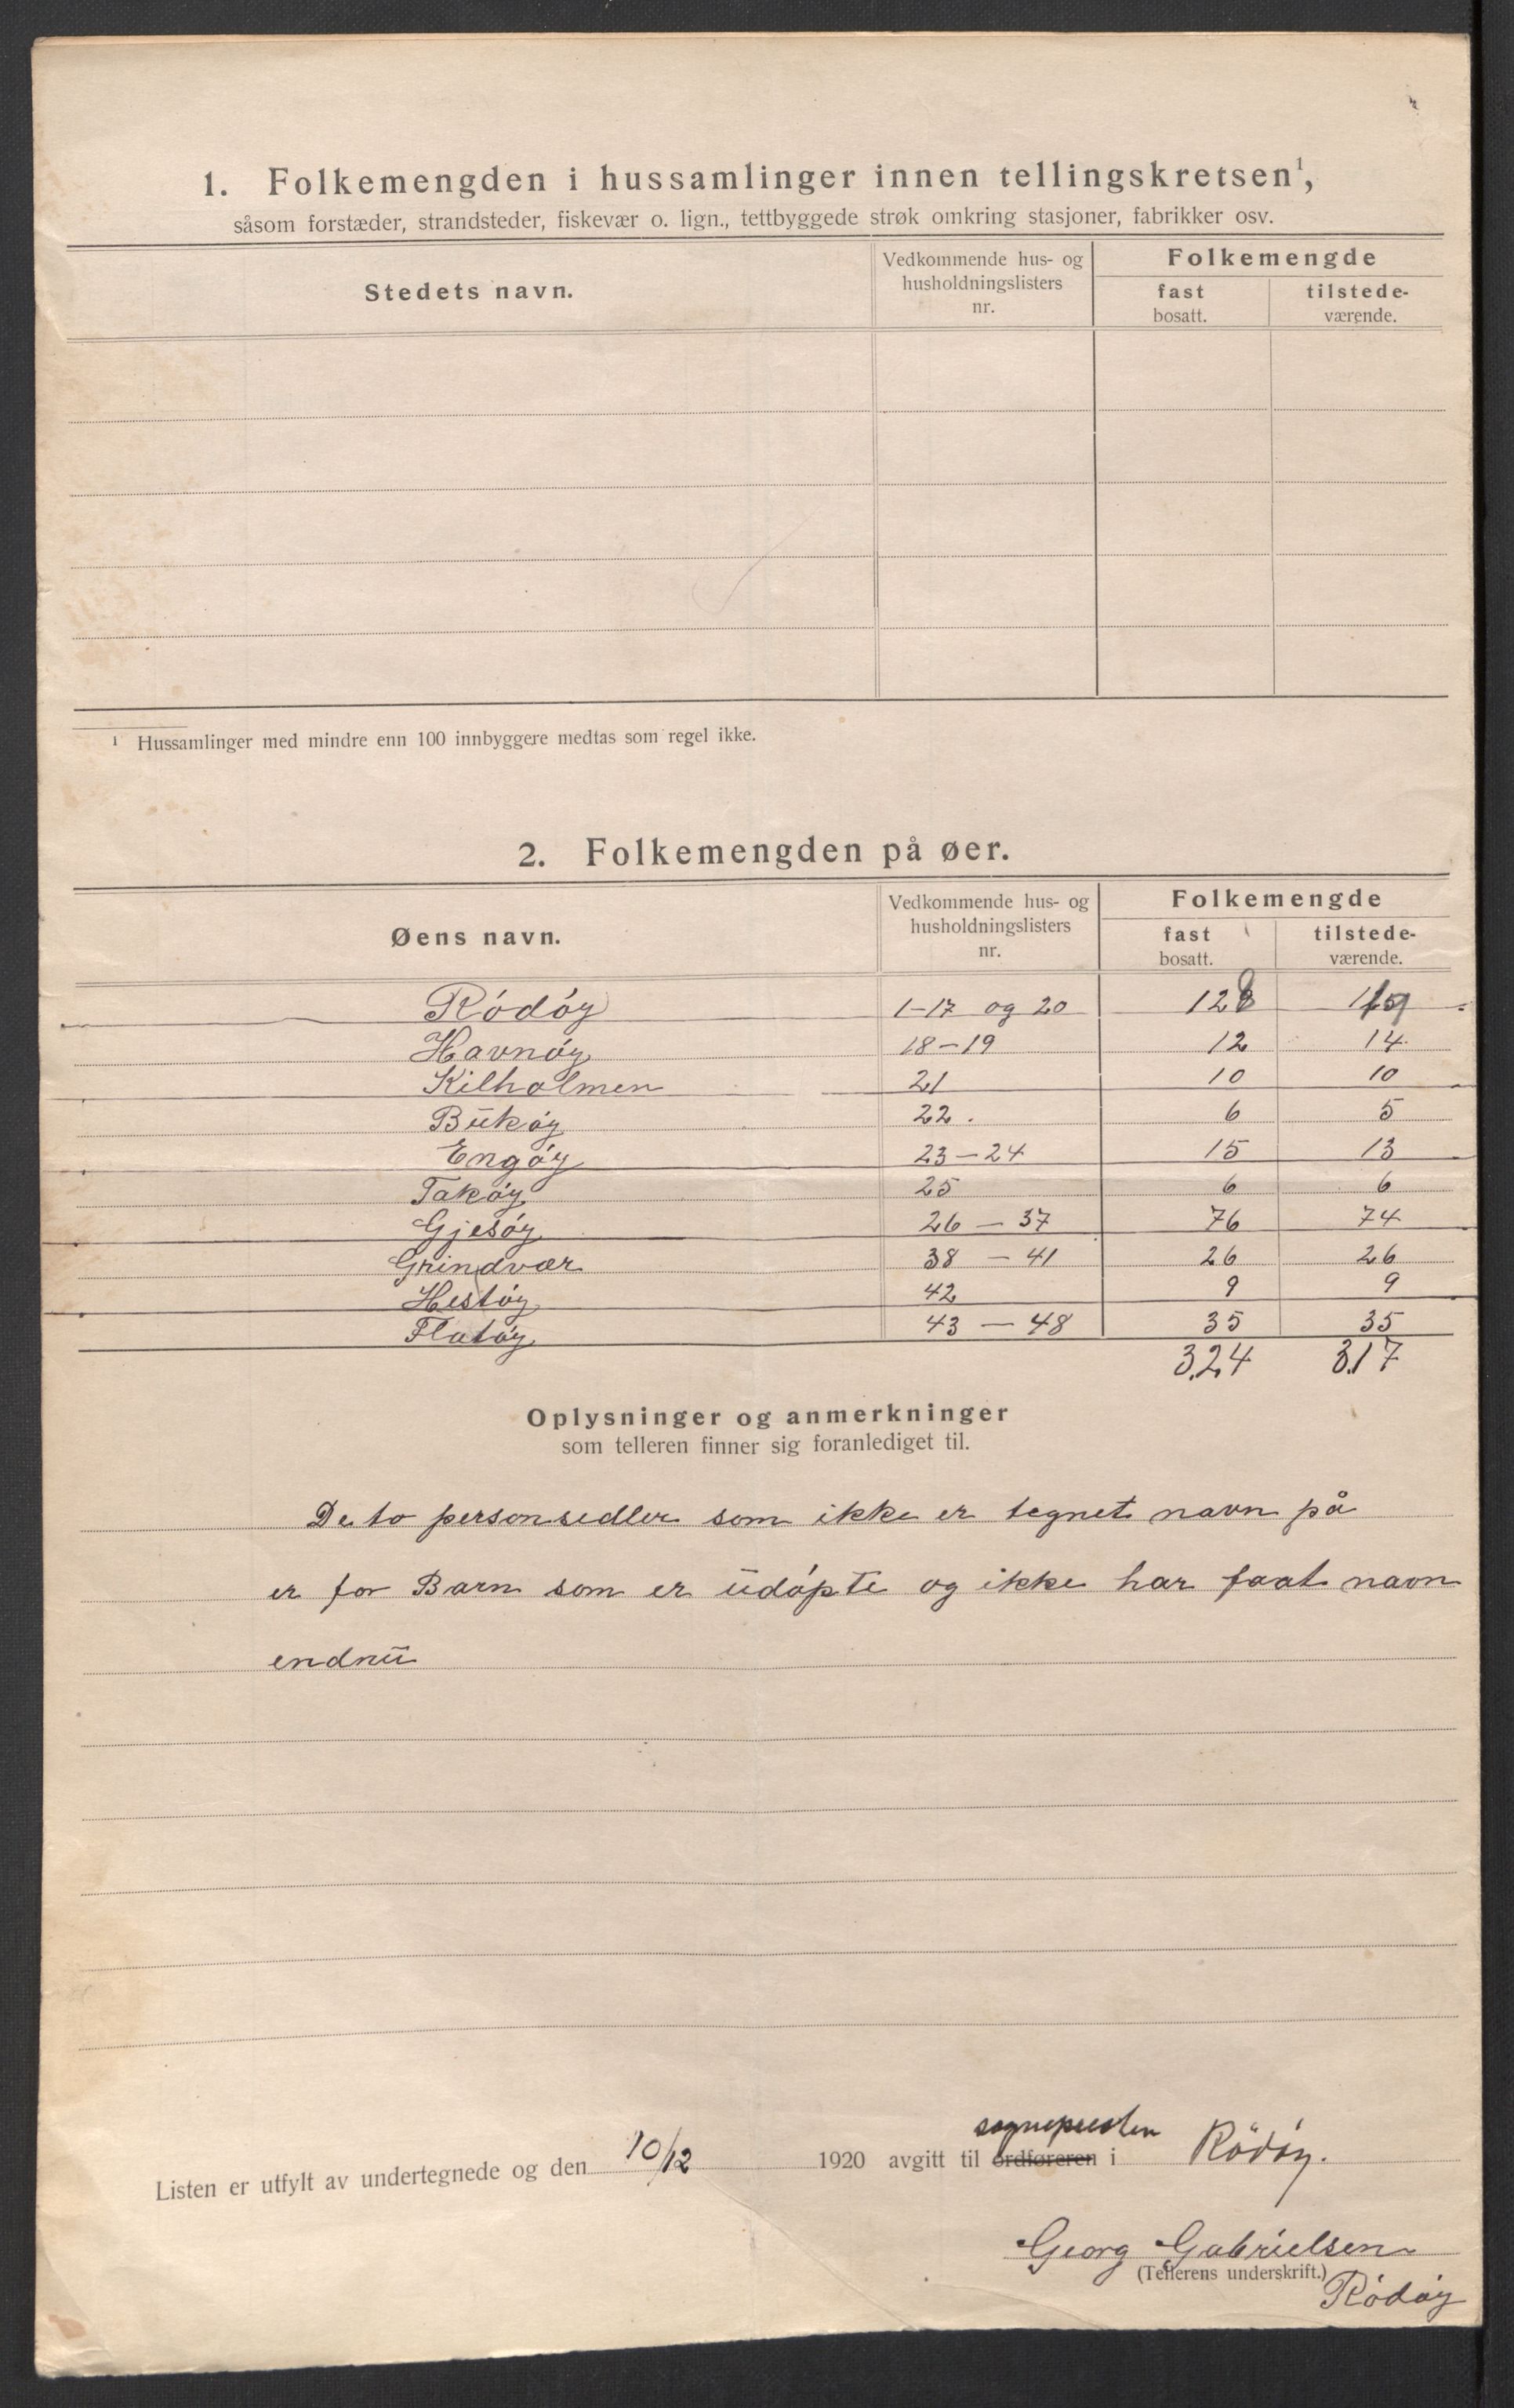 1. Folkemengden i hussamlinger innen tellingskretsen¹,
såsom forstæder, strandsteder, fiskevær o. lign., tettbyggede strøk omkring stasjoner, fabrikker osv.
Stedets navn. Vedkommende hus- og husholdningslisters nr. Folkemengde
fast bosatt. tilstede-værende.
¹ Hussamlinger med mindre enn 100 innbyggere medtas som regel ikke.
2. Folkemengden på øer.
Øens navn. Vedkommende hus- og husholdningslisters nr. Folkemengde
fast bosatt. tilstede-værende.
Rödöy 1-17 og 20 128
Havnöy 18-19 12 14
Kilholmen 21 10 10
Bukøy 22. 6 5
Engöy 23-24 15 13
Takøy 25 6 6
Gjesöy 26 - 37 76 74
Grindvær 38 - 41 26 26
Hestöy 42 9 9
Flatöy 43 - 48 35 35
324 317
Oplysninger og anmerkninger
som telleren finner sig foranlediget til.
De to personsedler som ikke er tegnet navn på
er for Barn som er udöpte og ikke har faat navn
endnu
sognepresten
Listen er utfylt av undertegnede og den 10/12 1920 avgitt til ordføreren i Rödöy.
Georg Gabrielsen
(Tellerens underskrift.)
Rödöy